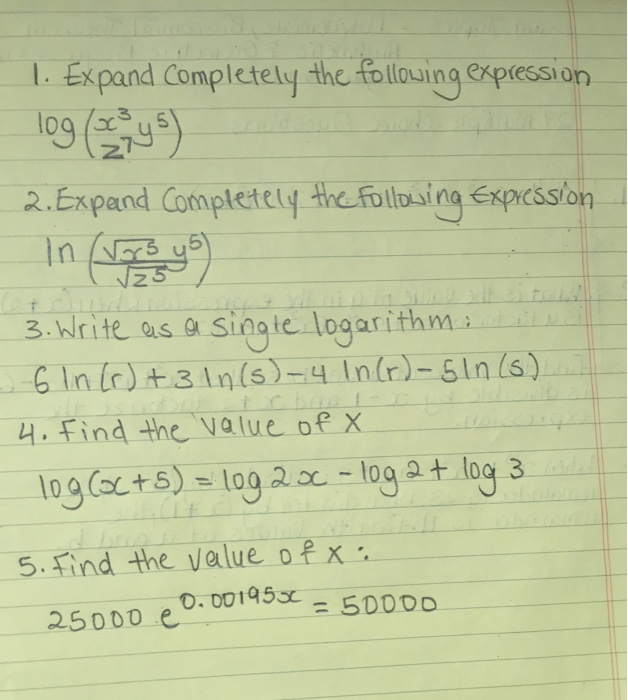 1. Expand Completely the following expression
log (x³y⁵/z⁷)
2. Expand Completely the Following Expression
ln (√x⁵ y⁵/√z⁵)
3. Write as a single logarithm:
6 ln(r) + 3 ln(s) - 4 ln(r) - 5 ln(s)
4. Find the value of X
log(x+5) = log 2x - log 2 + log 3
5. Find the value of x:
25000 e^0.00195x = 50000